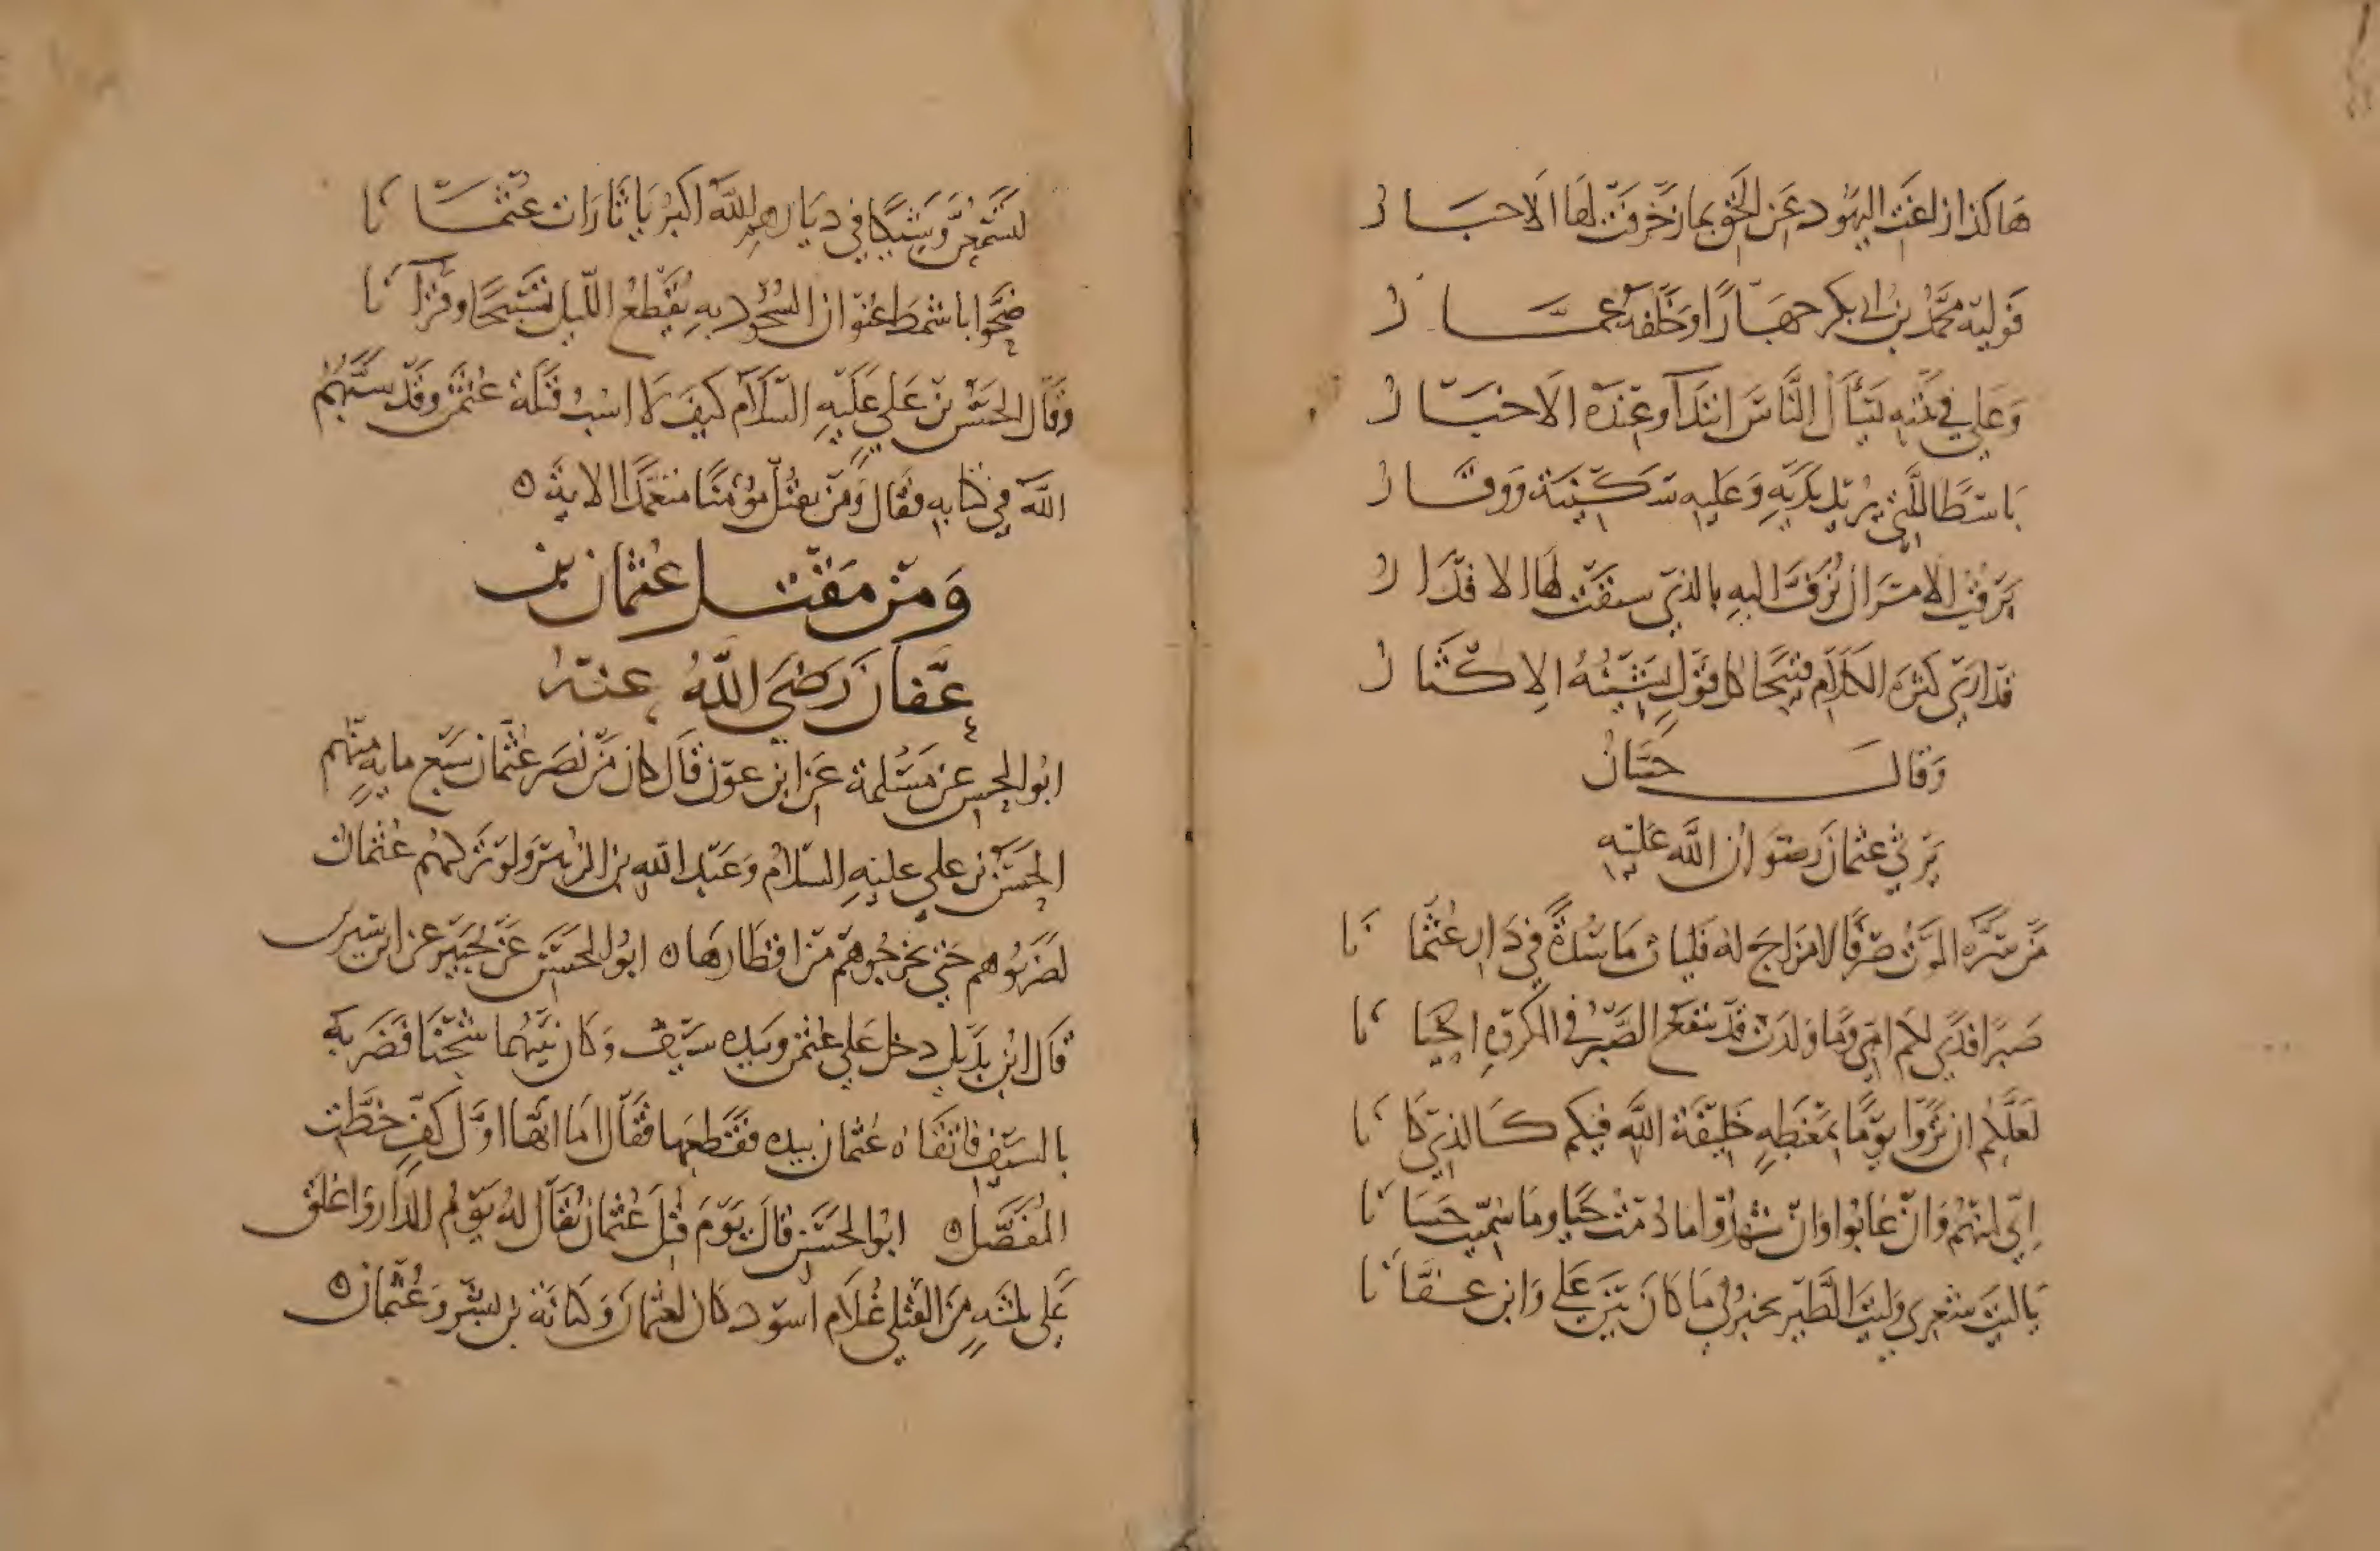 هَاكذا زاغت اليهود عن الحق بما زخرفت لها الاحبار
فوليه محمد بن ابي بكر جهارا وخلفه عمار
وعلي في بيته يسأل الناس ابتدآ وعنده الاخبار
باسطا للتي يريد يديه وعليه سكينة ووقار
يرقب الامر ان يزف اليه بالذي سبقت لها الاقدار
قد ارى كثرة الكلام قبيحا كل قول يشينه الاكثار
وقال حسان
يرثي عثمان رضوان الله عليه
من سره الموت صرفا لا مزاج له فليات ماسدة في دار عثمانا
صبرا فدى لكم امي وما ولدت قد ينفع الصبر في المكروه احيانا
لعلكم ان تروا يوما بمغبطة خليفة الله فيكم كالذي كانا
اني لمنهم وان غابوا وان شهدوا ما دمت حيا وما سميت حسانا
ياليت شعري وليت الطير يخبرني ما كان بين علي وابن عفانا
لتسمعن وشيكا في ديارهم الله اكبر يا ثارات عثمانا
ضحوا باشمط عنوان السجود به يقطع الليل تسبيحا وقرآنا
وقال الحسن بن علي عليه السلام كيف لا اسب قتلة عثمن وقد سبهم
الله في كتابه فقال ومن يقتل مؤمنا متعمدا الاية ه
ومن مقتل عثمان بن
عفان رضي الله عنه
ابو الحسن عن مسلمة عن ابن عون قال كان من نصر عثمان سبع مايه منهم
الحسن بن علي عليه السلام وعبد الله بن الزبير ولو تركهم عثمان
لضربوهم حتى يخرجوهم من اقطارها ه ابو الحسن عن جبير عن ابن سيرين
قال ابن بديل دخل على عثمن وبيده سيف وكان بينهما شحنا فضربه
بالسيف فاتقاه عثمان بيده فقطعها فقال اما انها اول كف خطت
المفصل ه ابو الحسن قال يوم قتل عثمان يقال له يوم الدار واغلق
على ثلثة من القتلى غلام اسود كان لعثمان وكنانة بن بشر وعثمان ه